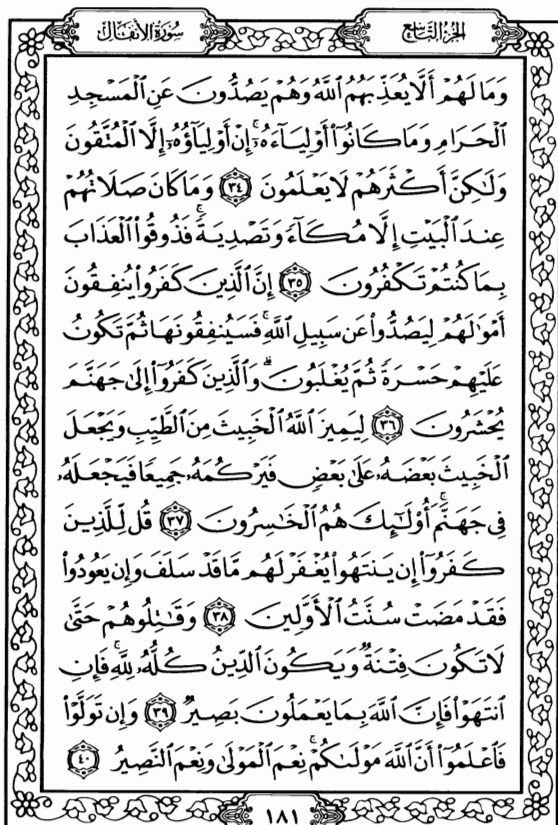 الجزء التاسع
سورة الأنفال
وَمَا لَهُمْ أَلَّا يُعَذِّبَهُمُ ٱللَّهُ وَهُمْ يَصُدُّونَ عَنِ ٱلْمَسْجِدِ
ٱلْحَرَامِ وَمَا كَانُوٓا۟ أَوْلِيَآءَهُۥٓۚ إِنْ أَوْلِيَآؤُهُۥٓ إِلَّا ٱلْمُتَّقُونَ
وَلَٰكِنَّ أَكْثَرَهُمْ لَا يَعْلَمُونَ ٣٤ وَمَا كَانَ صَلَاتُهُمْ
عِندَ ٱلْبَيْتِ إِلَّا مُكَآءً وَتَصْدِيَةًۚ فَذُوقُوا۟ ٱلْعَذَابَ
بِمَا كُنتُمْ تَكْفُرُونَ ٣٥ إِنَّ ٱلَّذِينَ كَفَرُوا۟ يُنفِقُونَ
أَمْوَٰلَهُمْ لِيَصُدُّوا۟ عَن سَبِيلِ ٱللَّهِۚ فَسَيُنفِقُونَهَا ثُمَّ تَكُونُ
عَلَيْهِمْ حَسْرَةً ثُمَّ يُغْلَبُونَۗ وَٱلَّذِينَ كَفَرُوٓا۟ إِلَىٰ جَهَنَّمَ
يُحْشَرُونَ ٣٦ لِيَمِيزَ ٱللَّهُ ٱلْخَبِيثَ مِنَ ٱلطَّيِّبِ وَيَجْعَلَ
ٱلْخَبِيثَ بَعْضَهُۥ عَلَىٰ بَعْضٍ فَيَرْكُمَهُۥ جَمِيعًا فَيَجْعَلَهُۥ
فِى جَهَنَّمَۚ أُو۟لَٰٓئِكَ هُمُ ٱلْخَٰسِرُونَ ٣٧ قُل لِّلَّذِينَ
كَفَرُوٓا۟ إِن يَنتَهُوا۟ يُغْفَرْ لَهُم مَّا قَدْ سَلَفَ وَإِن يَعُودُوا۟
فَقَدْ مَضَتْ سُنَّتُ ٱلْأَوَّلِينَ ٣٨ وَقَٰتِلُوهُمْ حَتَّىٰ
لَا تَكُونَ فِتْنَةٌ وَيَكُونَ ٱلدِّينُ كُلُّهُۥ لِلَّهِۚ فَإِنِ
ٱنتَهَوْا۟ فَإِنَّ ٱللَّهَ بِمَا يَعْمَلُونَ بَصِيرٌ ٣٩ وَإِن تَوَلَّوْا۟
فَٱعْلَمُوٓا۟ أَنَّ ٱللَّهَ مَوْلَىٰكُمْۚ نِعْمَ ٱلْمَوْلَىٰ وَنِعْمَ ٱلنَّصِيرُ ٤٠
١٨١